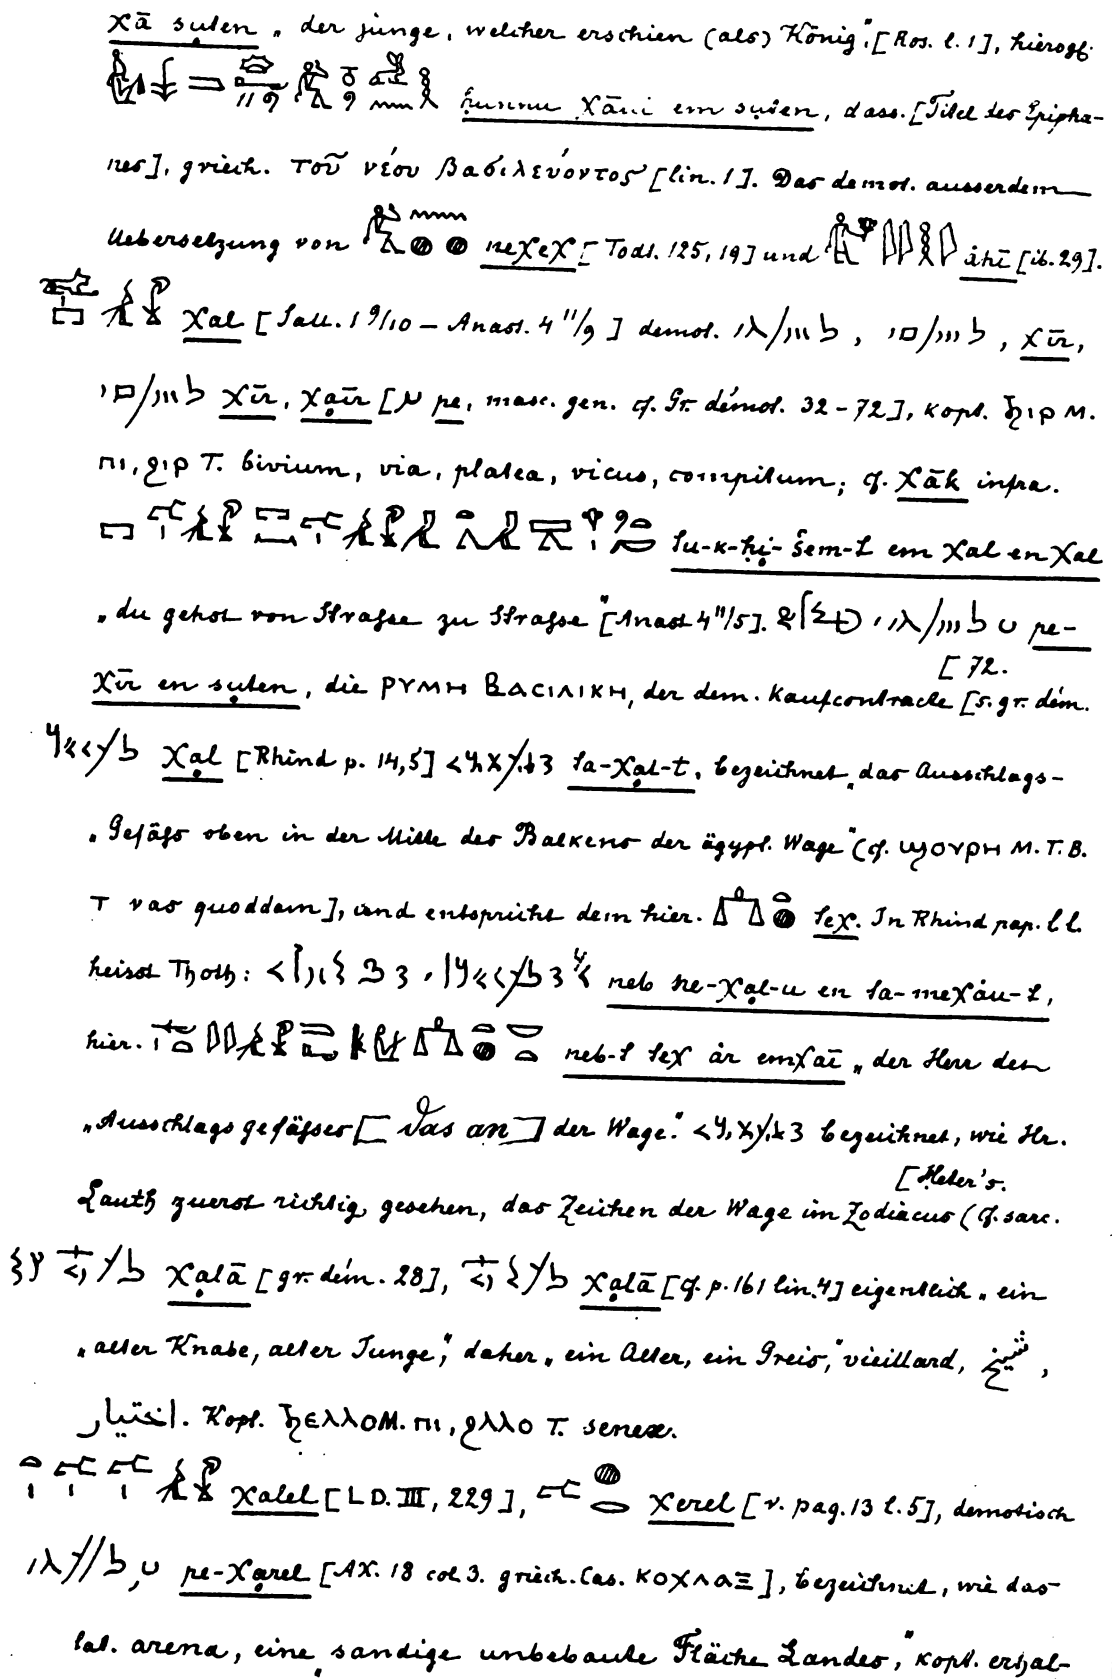 χā suten „der junge, welcher erschien (als) König", [Ros. l. 1], hierogl.
ḥunnu χāui em suten, dass. [Titel des Epipha-
nes], griech. τοῦ νέου βασιλεύοντος [lin. 1]. Das demot. ausserdem
Uebersetzung von neχeχ [Todt. 125, 19] und åḥī [ib. 29].
χal [Sall. 1 9/10 – Anast. 4 11/9] demot. , , χīr,
χīr, χaīr [pe, masc. gen. cf. Gr. démot. 32–72], kopt. ϧⲓⲣ M.
ⲡⲓ, ϩⲓⲣ T. bivium, via, platea, vicus, compitum; cf. χāk infra.
tu-k-ḥi-šem-t em χal en χal
„du gehst von Strasse zu Strasse" [Anast 4 11/5]. pe-
[72.
χīr en suten, die ΡΥΜΗ ΒΑCΙΛΙΚΗ, der dem. Kaufcontracte [s. gr. dém.
χal [Rhind p. 14,5] ta-χal-t, bezeichnet „das Ausschlags-
„Gefäss oben in der Mitte des Balkens der ägypt. Wage" (cf. ϣⲟⲩⲣⲏ M. T. B.
ⲧ vas quoddam], und entspricht dem hier. teχ. In Rhind pap. l. l.
heisst Thoth: neb ne-χal-u en ta-meχåu-t,
hier. neb-t teχ år emχaī „der Herr des
„Ausschlagsgefässes [das an] der Wage." bezeichnet, wie Hr.
[Heter's.
Lauth zuerst richtig gesehen, das Zeichen der Wage im Zodiacus (cf. sarc.
χalā [gr. dém. 28], χalā [cf. p. 161 lin. 4] eigentlich „ein
„alter Knabe, alter Junge", daher „ein Alter, ein Greis", vieillard, شيخ,
اختيار. Kopt. ϧⲉⲗⲗⲟ M. ⲡⲓ, ϩⲗⲗⲟ T. senex.
χalel [LD. III, 229], χerel [v. pag. 13 l. 5], demotisch
pe-χarel [AX. 18 col 3. griech. Cas. ΚΟΧΛΑΞ], bezeichnet, wie das
lat. arena, eine „sandige unbebaute Fläche Landes", kopt. erhal-